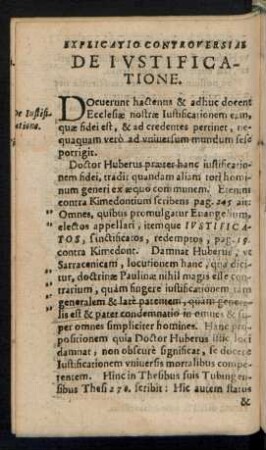 EXPLICATIO CONTROVERSIAE
DE IVSTIFICA-
TIONE.
De Iustifi-
catione.
DOcuerunt hactenus & adhuc docent
Ecclesiæ nostræ Iustificationem eam,
quæ fidei est, & ad credentes pertinet, ne-
quaquam verò ad vniuersum mundum sese
porrigit.
Doctor Huberus præter hanc iustificatio-
nem fidei, tradit quandam aliam toti homi-
num generi ex æquo communem. Etenim
contra Kimedontium scribens pag. 245 ait:
" Omnes, quibus promulgatur Euangelium,
" electos appellari, itemque IVSTIFICA-
" TOS, sanctificatos, redemptos, pag. 15.
contra Kimedont. Damnat Huberus, vt
" Sarracenicam, locutionem hanc, qua dici-
" tur, doctrinæ Paulinæ nihil magis esse con-
" trarium, quàm fingere iustificationem tàm
" generalem & latè patentem, quàm genera-
" lis est & patet condemnatio in omnes & su-
" per omnes simpliciter homines. Hanc pro-
positionem quia Doctor Huberus istic loci
damnat, non obscurè significat, se docere
Iustificationem vniuersis mortalibus compe-
tentem. Hinc in Thesibus suis Tubingen-
sibus Thesi 278. scribit: Hic autem status
&